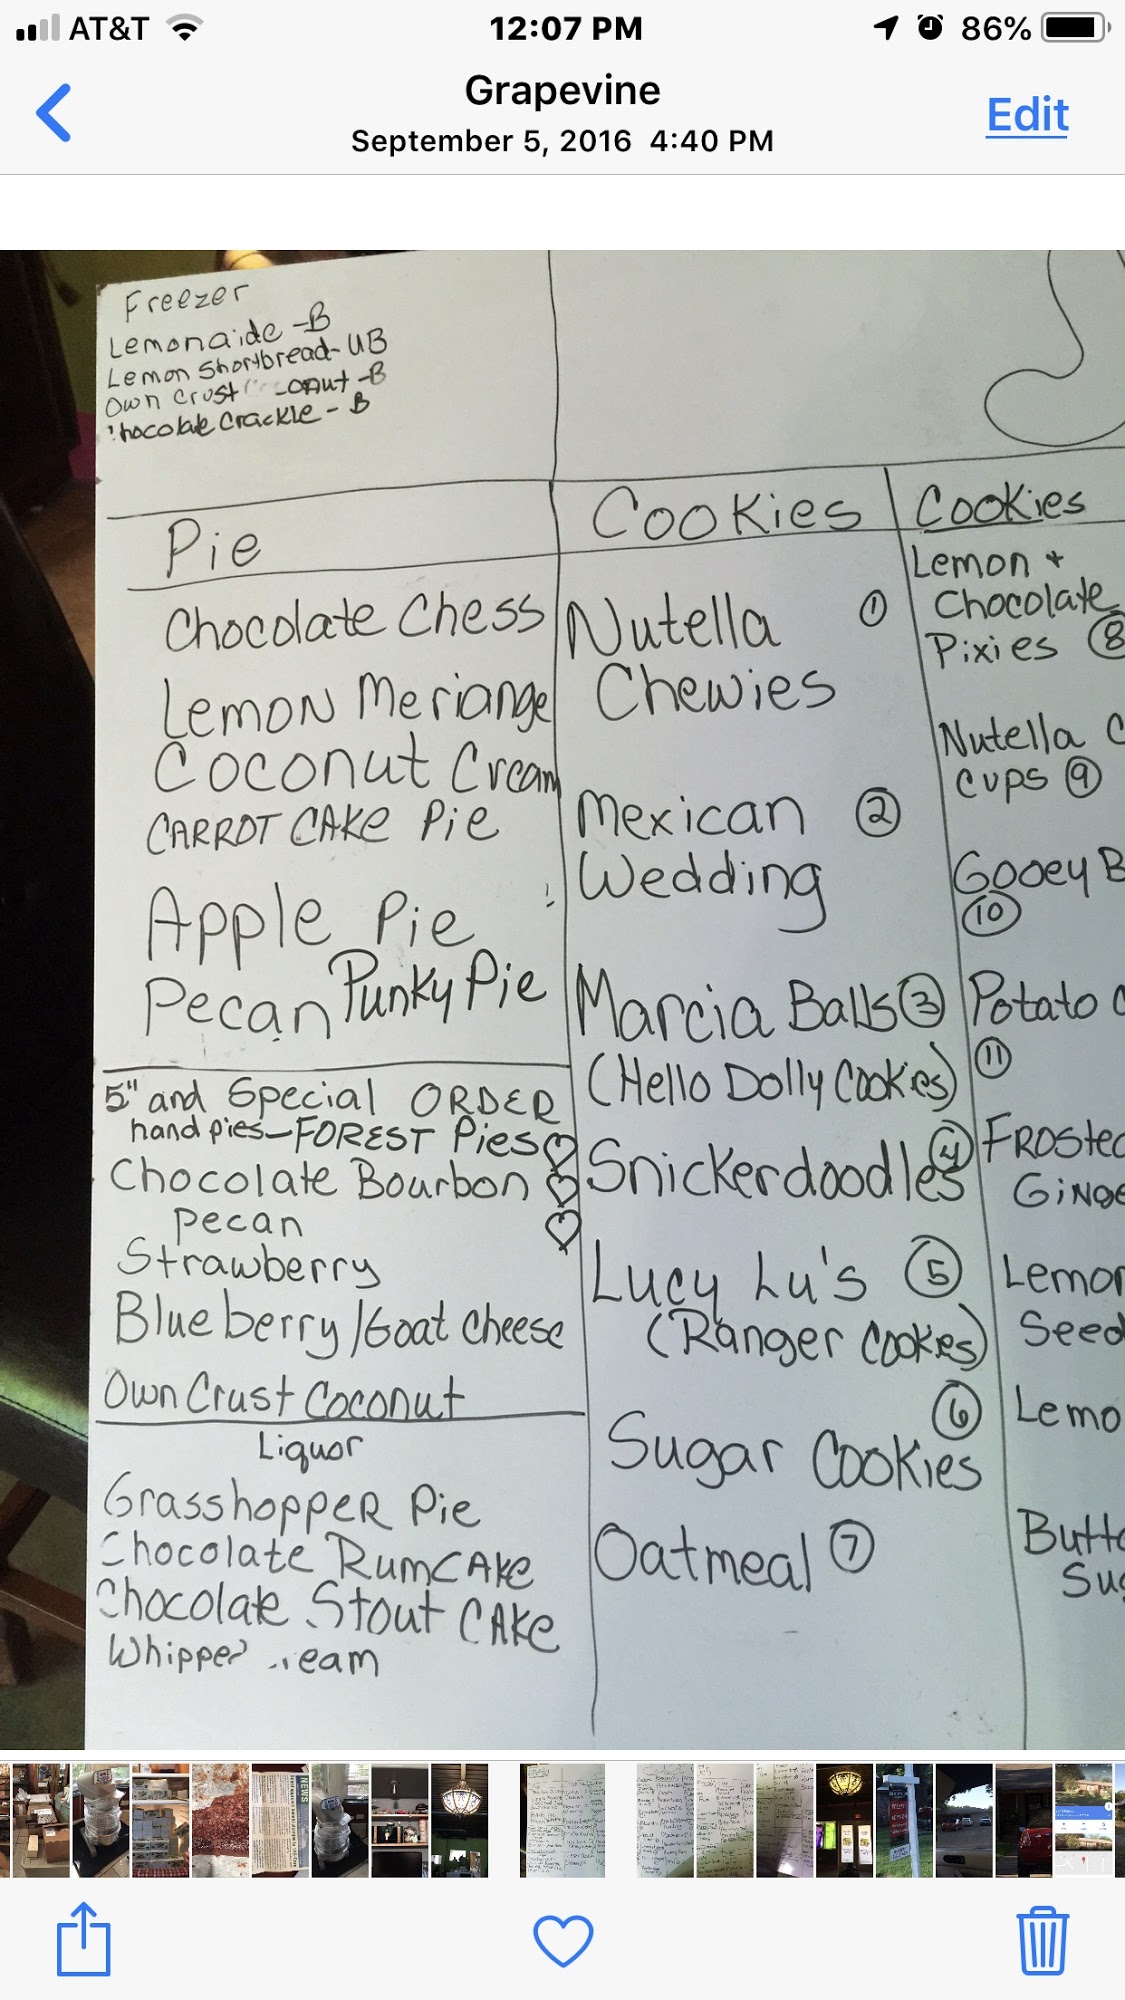 AT&T 12:07 PM 86%
Grapevine
September 5, 2016 4:40 PM
Edit
Freezer
Lemonaide -B
Lemon Shortbread- UB
Own Crust -B
Crackle - B
Pie
Chocolate Chess
Lemon Meriange
Coconut Cream
CARROT CAKe Pie
Apple Pie
Pecan Punky Pie
5" and Special ORDER
hand pies-FOREST Pies
Chocolate Bourbon
Pecan
Strawberry
Blueberry/Goat Cheese
Own Crust Coconut
Liquor
GrasshoppeR Pie
Chocolate RumCAKe
Chocolate Stout CAKe
Whipped
Cookies
Nutella ①
Chewies
Mexican ②
Wedding
Marcia Balls ③
(Hello Dolly Cookies)
Snickerdoodles ④
Lucy Lu's ⑤
(Ranger Cookies)
⑥
Sugar Cookies
Oatmeal ⑦
Cookies
Lemon +
Chocolate
Pixies ⑧
Nutella C
Cups ⑨
Gooey B
⑩
Potato C
⑪
FRosted
GiNge
Lemon
Seed
Lemo
Butte
Sug